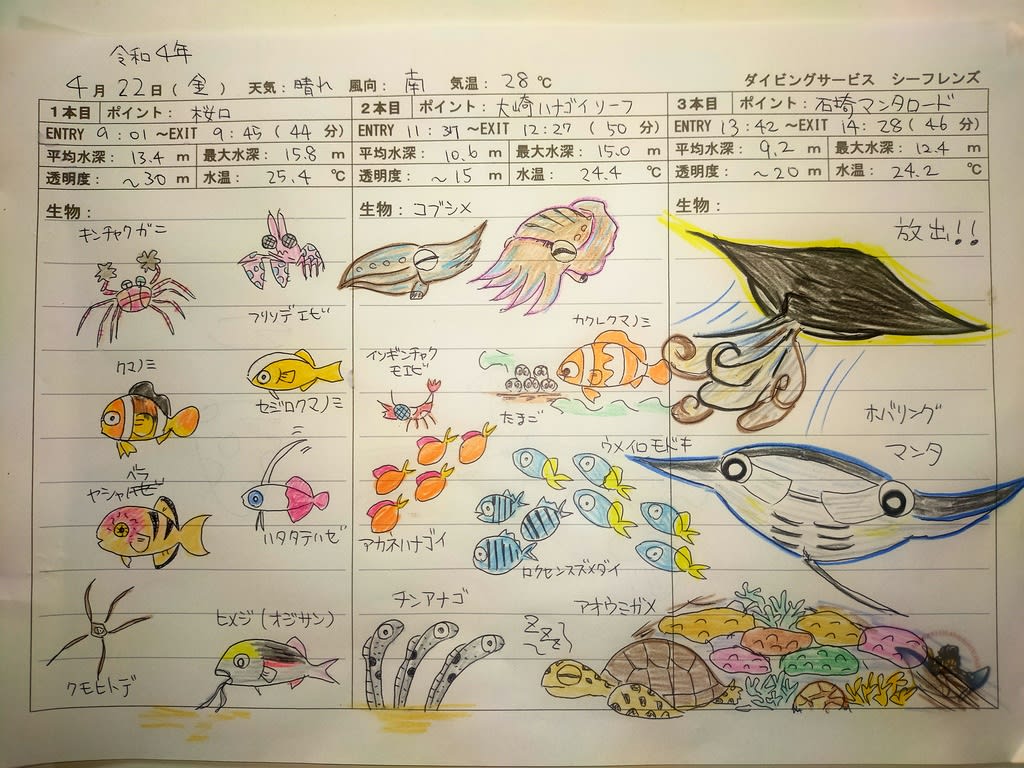 令和4年
4月22日(金) 天気:晴れ 風向:南 気温:28℃ ダイビングサービス シーフレンズ
1本目 ポイント:桜口
ENTRY 9:01~EXIT 9:45(44分)
平均水深:13.4m 最大水深:15.8m
透明度:~30m 水温:25.4℃
生物:
キンチャクガニ
フリソデエビ
クマノミ
セジロクマノミ
ベラ
ヤシャ
ハタタテハゼ
クモヒトデ
ヒメジ(オジサン)
2本目 ポイント:大崎ハナゴイリーフ
ENTRY 11:37~EXIT 12:27(50分)
平均水深:10.6m 最大水深:15.0m
透明度:~15m 水温:24.4℃
生物:コブシメ
カクレクマノミ
イソギンチャク
モエビ
たまご
ウメイロモドキ
アカネハナゴイ
ロクセンスズメダイ
チンアナゴ
アオウミガメ
ZZZ
3本目 ポイント:石埼マンタロード
ENTRY 13:42~EXIT 14:28(46分)
平均水深:9.2m 最大水深:12.4m
透明度:~20m 水温:24.2℃
生物:
放出!!
ホバリング
マンタ